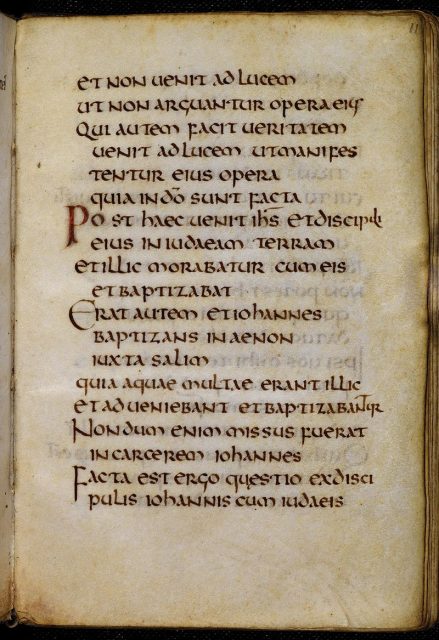 11
et non uenit ad lucem
ut non arguantur opera eius
Qui autem facit ueritatem
uenit ad lucem ut manifes
tentur eius opera
quia in dō sunt facta
Post haec uenit ihs et discipuli
eius in iudaeam terram
et illic morabatur cum eis
et baptizabat
Erat autem et iohannes
baptizans in aenon
iuxta salim
quia aquae multae erant illic
et adueniebant et baptizabantur
Nondum enim missus fuerat
in carcerem iohannes
Facta est ergo quęstio ex disci
pulis iohannis cum iudaeis